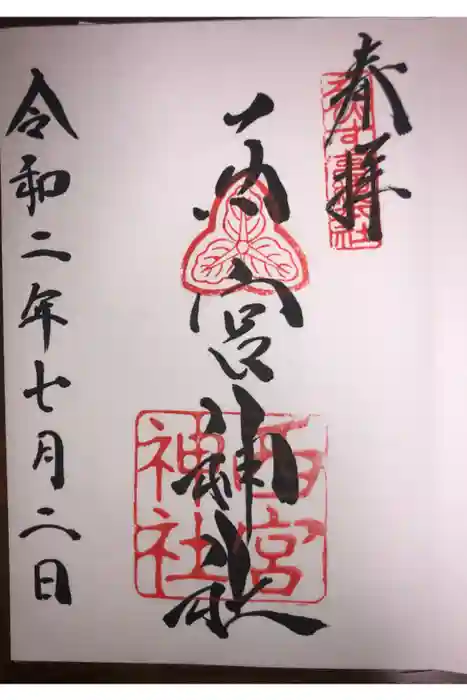 奉拝
西宮神社
西宮神社
令和二年七月二日